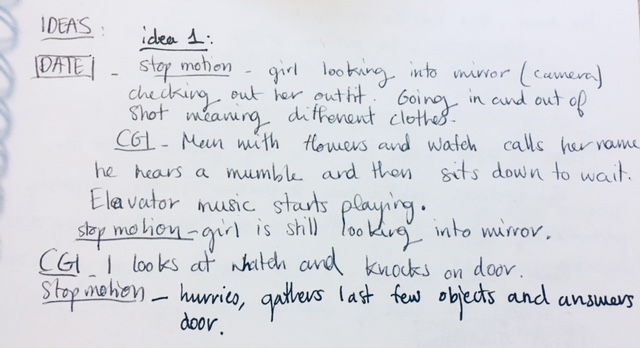 IDEAS:
idea 1:
DATE - stop motion - girl looking into mirror (camera)
checking out her outfit. Going in and out of
shot meaning different clothes.
CGI - Man with flowers and watch calls her name
he hears a mumble and then sits down to wait.
Elevator music starts playing.
stop motion - girl is still looking into mirror.
CGI - looks at watch and knocks on door.
Stop motion - hurries, gathers last few objects and answers
door.